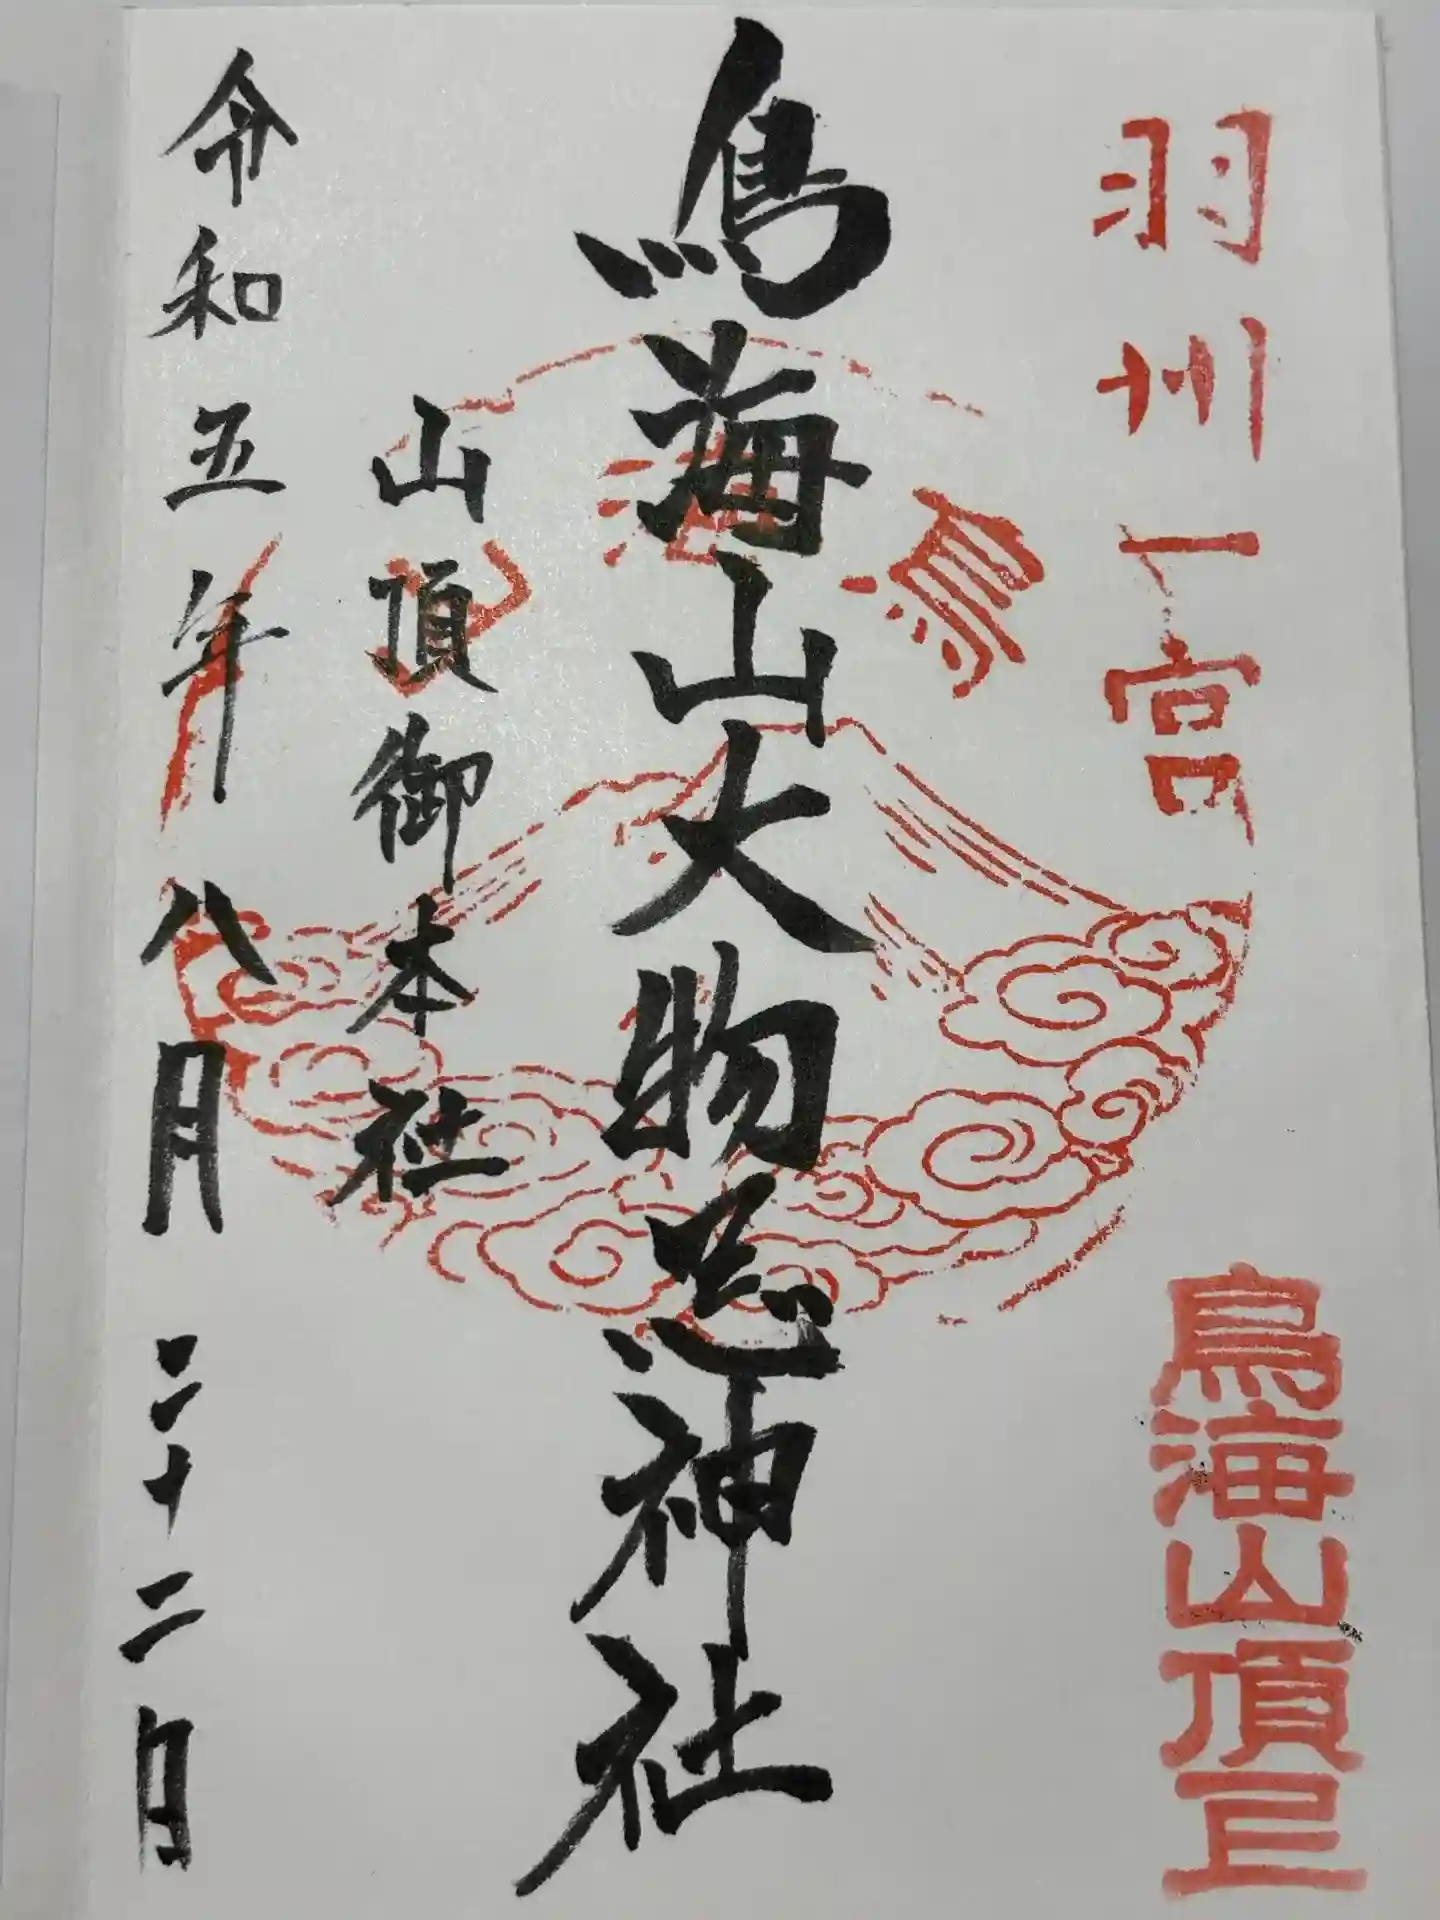 羽州一宮
鳥海山頂上
鳥海山
鳥海山大物忌神社
山頂御本社
令和五年八月二十二日